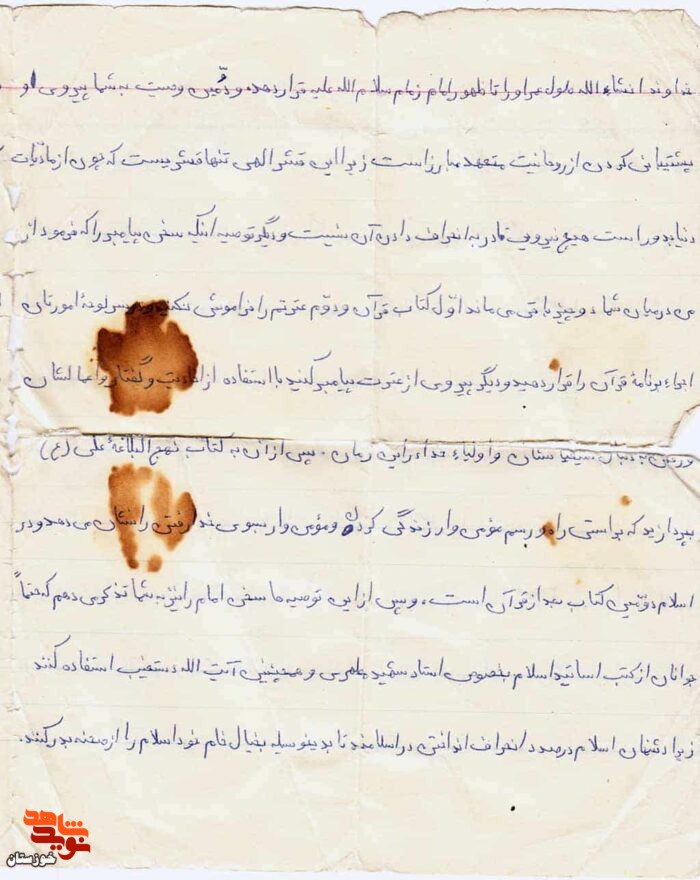 خداوند انشاء الله طول عمر او را تا ظهور امام زمام سلام الله علیه قرار دهد، و دوّمین وصیت به شما پیروی او
پشتیبانی کردن از روحانیت متعهد مبارز است زیرا این قشر الهی تنها قشریست که چون از مادّیات
دنیا بدور است هیچ نیرویی قادر به انحراف دادن آن نیست و دیگر توصیه اینکه سخن پیامبر را که فرمود از
من درمیان شما دو چیز باقی می ماند اوّل کتاب قرآن و دوّم عترتم را فراموش نکنید و سرلوحهٔ امورتان
اجراء برنامهٔ قرآن را قرار دهید و دیگر پیروی از عترت پیامبر کنید با استفاده از احادیث و گفتار و اعمالشان
و اولیاء خداء این زمان. پس از آن به کتاب نهج البلاغهٔ علی (ع)
بپردازید که براستی راه و رسم مؤمن وار زندگی کردن و مؤمن وار بسوی خدا رفتن را نشان می دهد و در
اسلام دوّمین کتاب بعد از قرآن است، و پس از این توصیه ها سخن امام را نیز به شما تذکر می دهم که حتماً
جوانان از کتب اساتید اسلام بخصوص استاد شهید مطهری و همچنین آیت الله دستغیب استفاده کنند
زیرا دشمنان اسلام درصدد انحراف انداختن در اسلامند تا بدینوسیله بخیال خام خود اسلام را از صحنه بدر کنند.
نوید شاهد
خوزستان